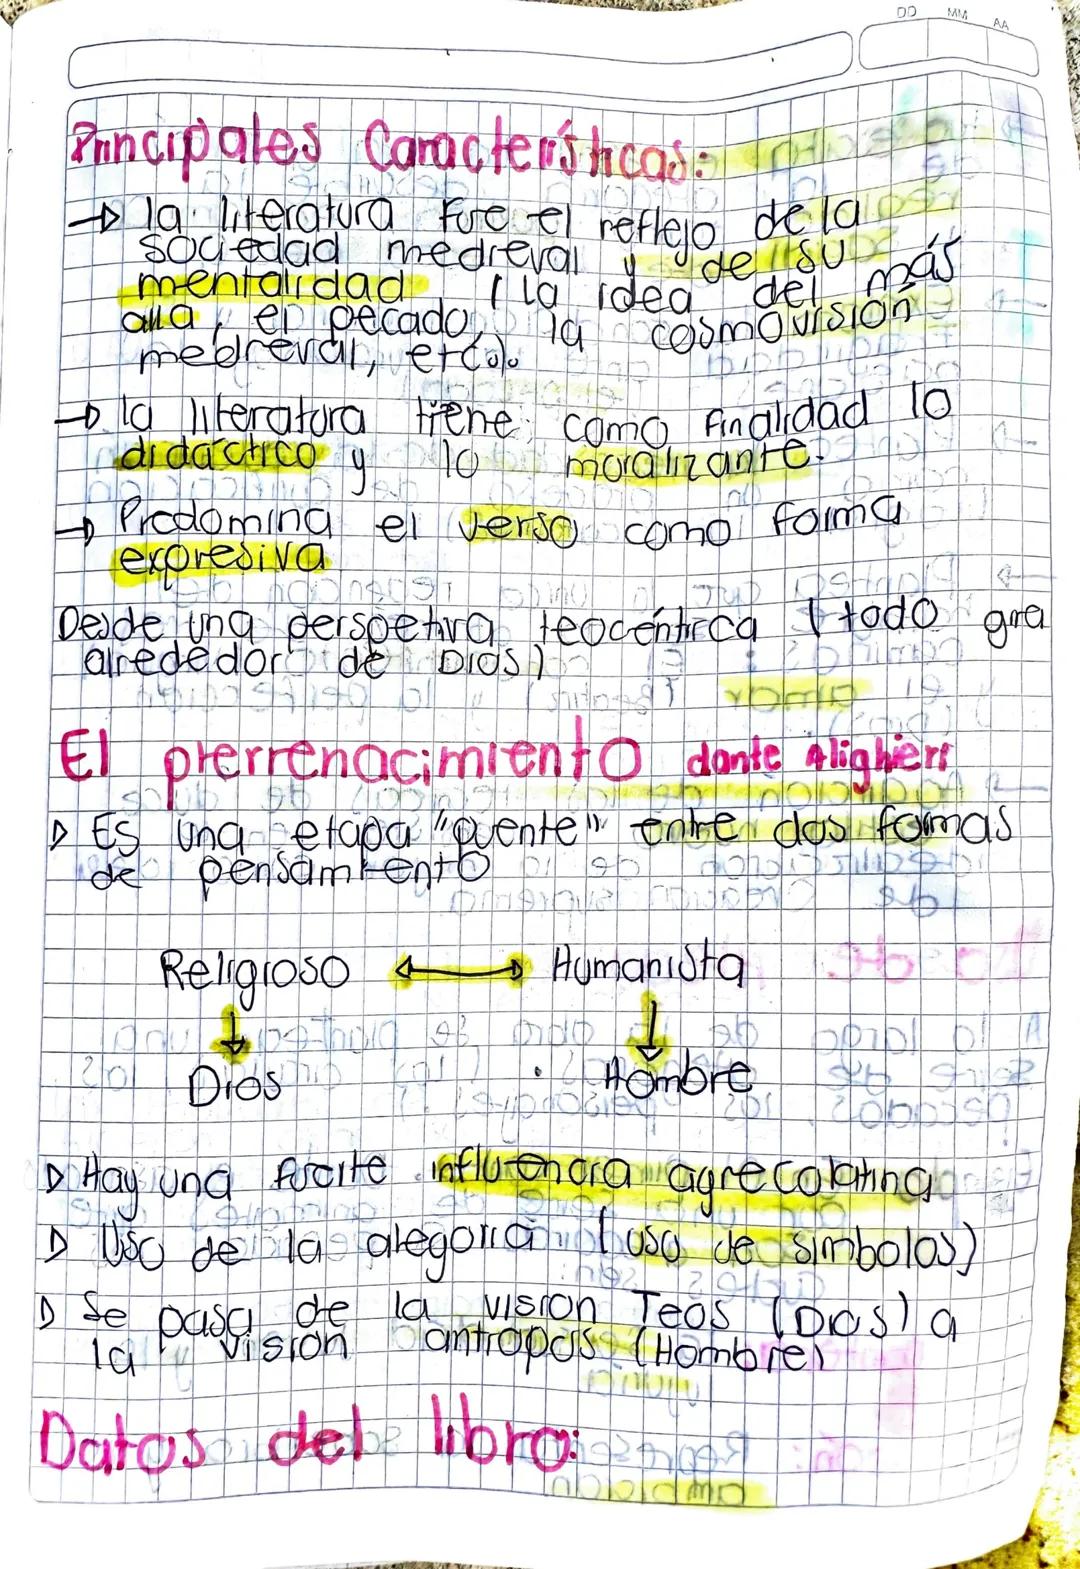 DD MM AA
Principales Características:
→ la literatura fue el reflejo de la
sociedad medieval y de su
mentalidad (la idea del más
allá, el pecado, la cosmovisión
medieval, etc).
→ la literatura tiene como finalidad lo
didáctico y lo moralizante.
→ Predomina el verso como forma
expresiva
Desde una perspetiva teocéntrica (todo gira
alrededor de Dios)
El prerrenacimiento dante Alighieri
▷ Es una etapa "puente" entre dos formas
de pensamiento
Religioso ↔ Humanista
↓ ↓
Dios Hombre
▷ Hay una fuerte influencia agrecolatina
▷ Uso de la alegoría (uso de simbolos)
▷ Se pasa de la visión Teos (Dios) a
la visión antropos (Hombre)
Datos del libro: